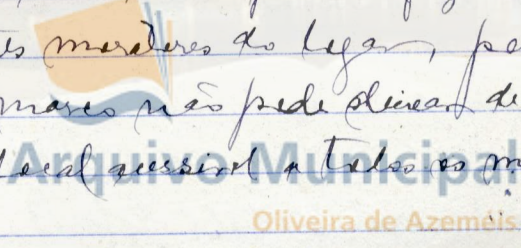 moradores do lugar, pe
marco não pode deixar de
local acessivel a todos os m
Arquivo Municipal
Oliveira de Azeméis